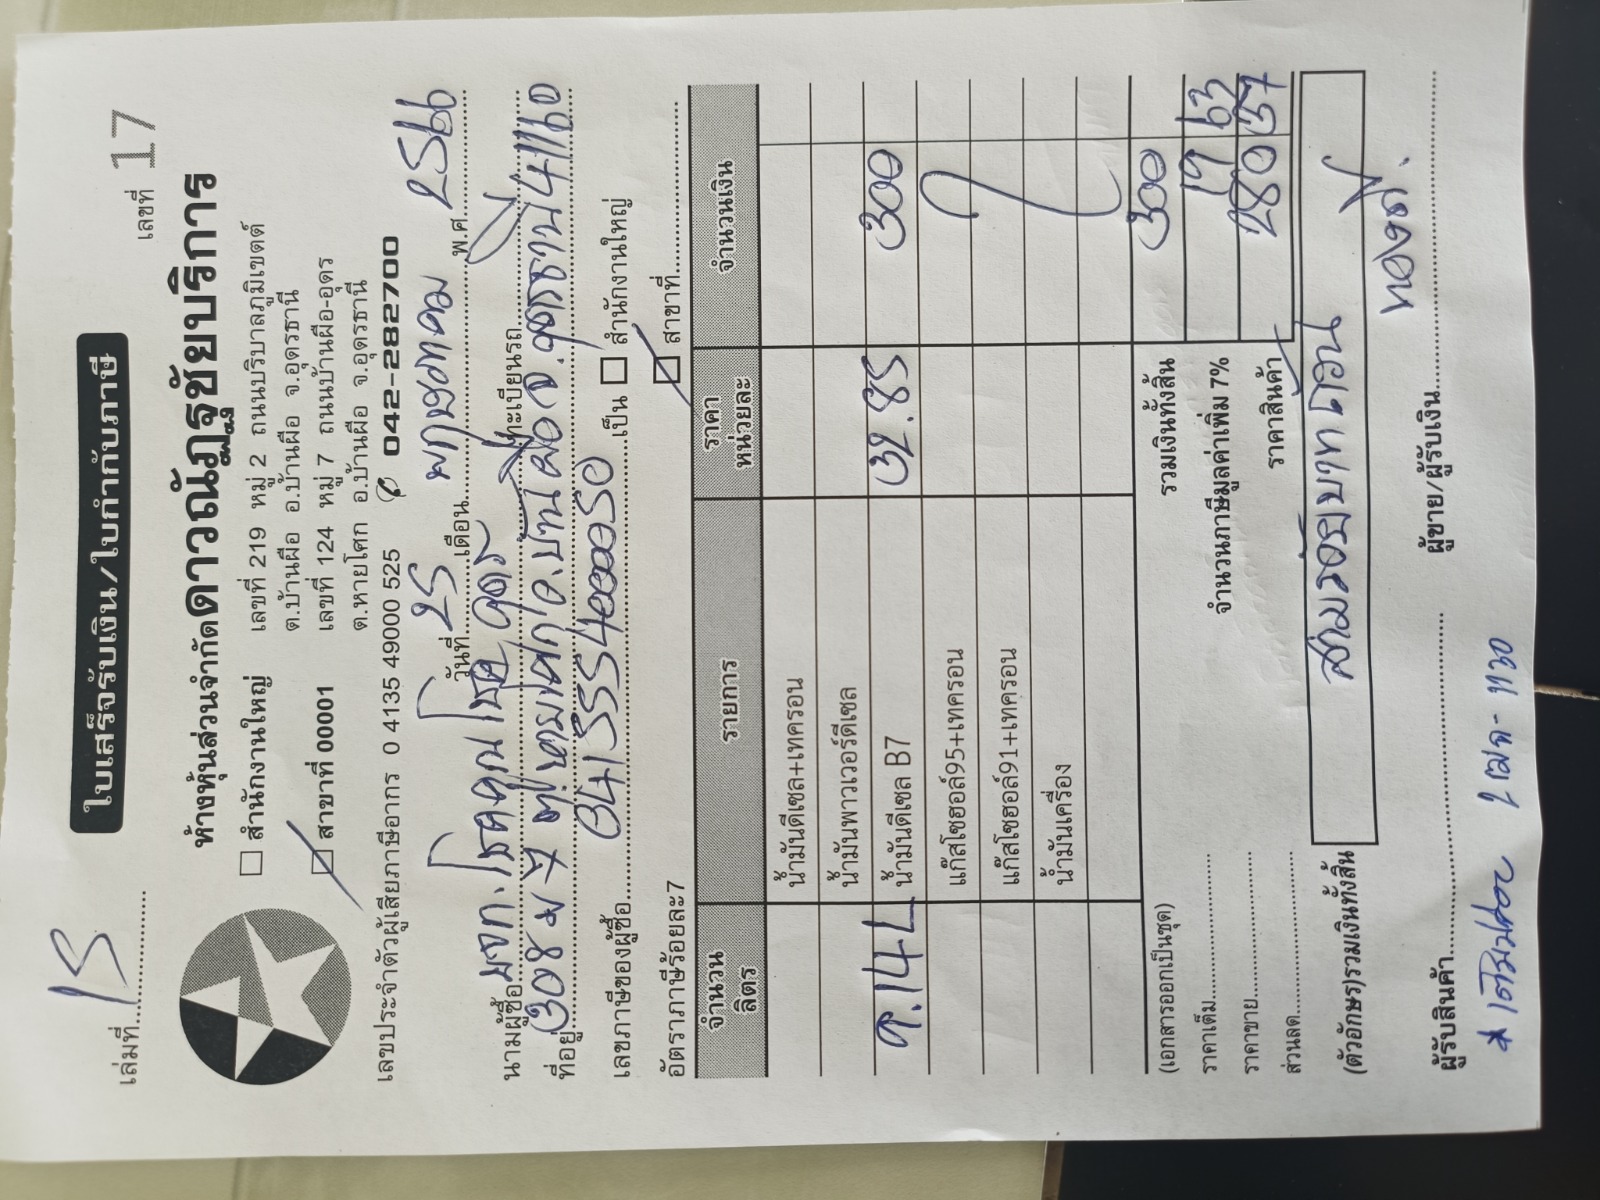 เล่มที่ 15
เลขที่ 17
ใบเสร็จรับเงิน/ใบกำกับภาษี
ห้างหุ้นส่วนจำกัดดาวณัฏฐชัยบริการ
สำนักงานใหญ่ เลขที่ 219 หมู่ 2 ถนนบริบาลภูมิเขตต์
ต.บ้านผือ อ.บ้านผือ จ.อุดรธานี
สาขาที่ 00001 เลขที่ 124 หมู่ 7 ถนนบ้านผือ-อุดร
ต.หายโศก อ.บ้านผือ จ.อุดรธานี
เลขประจำตัวผู้เสียภาษีอากร 0 4135 49000 525 042-282700
วันที่ 25 เดือน พฤษภาคม พ.ศ. 2566
นามผู้ซื้อ บจก.โชคคูณโชค อุดร ทะเบียนรถ
ที่อยู่ 308 ม 7 อ.บ้านผือ จ.อุดรธานี 41160
เลขภาษีของผู้ซื้อ 0415554000050 เป็น สำนักงานใหญ่
อัตราภาษีร้อยละ7 สาขาที่
จำนวน ลิตร รายการ ราคา หน่วยละ จำนวนเงิน
น้ำมันดีเซล+เทครอน
น้ำมันพาวเวอร์ดีเซล
9.14L น้ำมันดีเซล B7 32.85 300
แก๊สโซฮอล์95+เทครอน
แก๊สโซฮอล์91+เทครอน
น้ำมันเครื่อง
(เอกสารออกเป็นชุด) รวมเงินทั้งสิ้น 300
ราคาเต็ม จำนวนภาษีมูลค่าเพิ่ม 7% 19 63
ราคาขาย ราคาสินค้า 280 37
ส่วนลด
(ตัวอักษร)รวมเงินทั้งสิ้น สามร้อยบาทถ้วน
ผู้รับสินค้า ผู้ขาย/ผู้รับเงิน